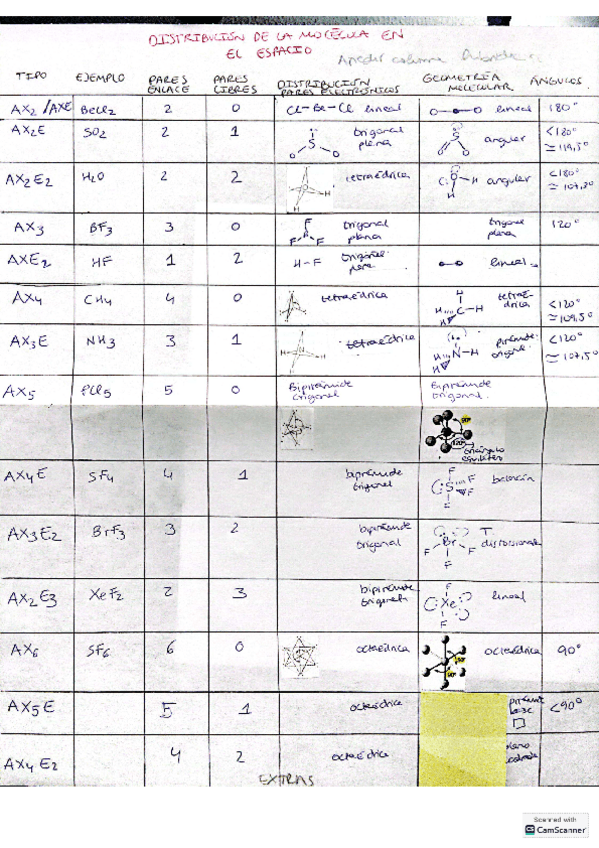 DISTRIBUCIÓN DE LA MOLÉCULA EN
EL ESPACIO
Añadir columna
TIPO EJEMPLO PARES ENLACE PARES LIBRES DISTRIBUCIÓN PARES ELECTRÓNICOS GEOMETRÍA MOLECULAR ÁNGULOS
AX2 /AXE BeCl2 2 0 Cl-Be-Cl lineal lineal 180°
AX2E SO2 2 1 S O O trigonal plana S O O angular <120° ≃119,5°
AX2E2 H2O 2 2 tetraédrica O H H angular <180°
AX3 BF3 3 0 F B F F trigonal plana trigonal plana 120°
AXE2 HF 1 2 H-F trigonal plana lineal
AX4 CH4 4 0 tetraédrica H C H H H tetraédrica <120° ≃109,5°
AX3E NH3 3 1 tetraédrica H N H H <120° ≃107,5°
AX5 PCl5 5 0 Bipirámide trigonal Bipirámide trigonal.
90°
120° triángulo equilátero
AX4E SF4 4 1 bipirámide trigonal F S F F F balancín
AX3E2 BrF3 3 2 bipirámide trigonal F Br F F T distorsionada
AX2E3 XeF2 2 3 bipirámide trigonal F Xe F lineal
AX6 SF6 6 0 octaédrica 90° 90° octaédrica 90°
AX5E 5 1 octaédrica <90°
AX4E2 4 2 octaédrica plano
EXTRAS
Scanned with
CS CamScanner